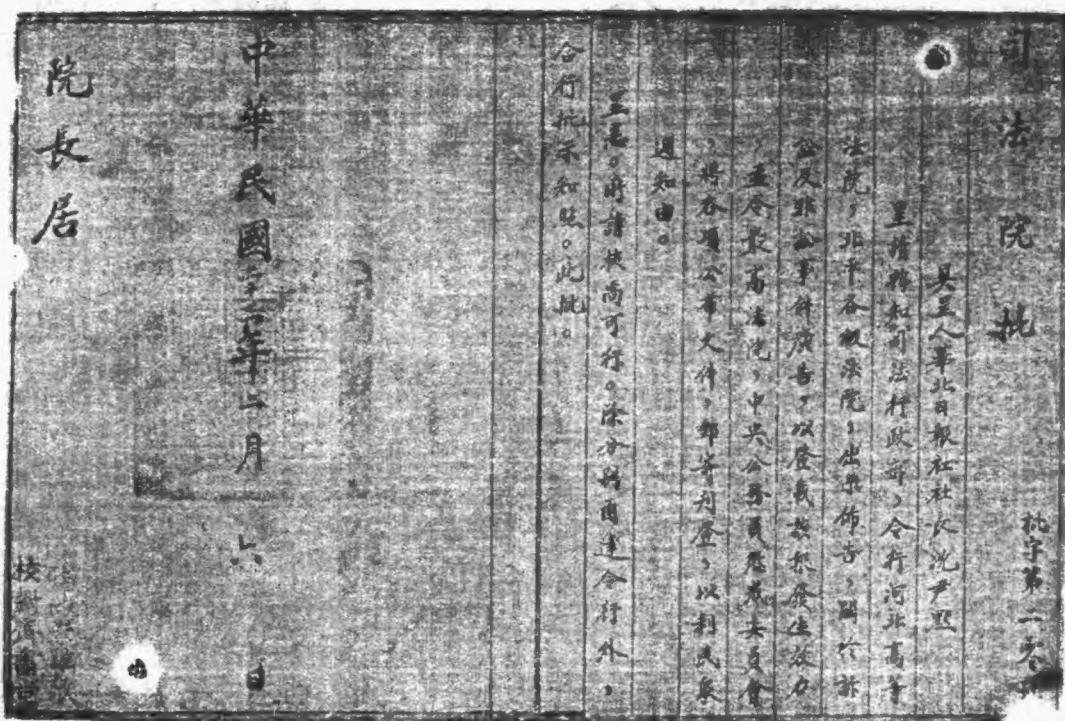 司法院批
批字第二零
具呈人華北日報社社長沈尹默
呈請轉知司法行政部，令行河北高等
法院，北平各級法院，出示佈告，關於訴
訟及非訟事件廣告，以登載該報發生效力
，並令最高法院，中央公務員懲戒委員會
，將各項公布文件，郵寄刊登，以利民衆
週知由。
呈悉。所請核尚可行。除分別函達令行外，
合行批示知照。此批。
中華民國二十年二月六日
院長居
校對